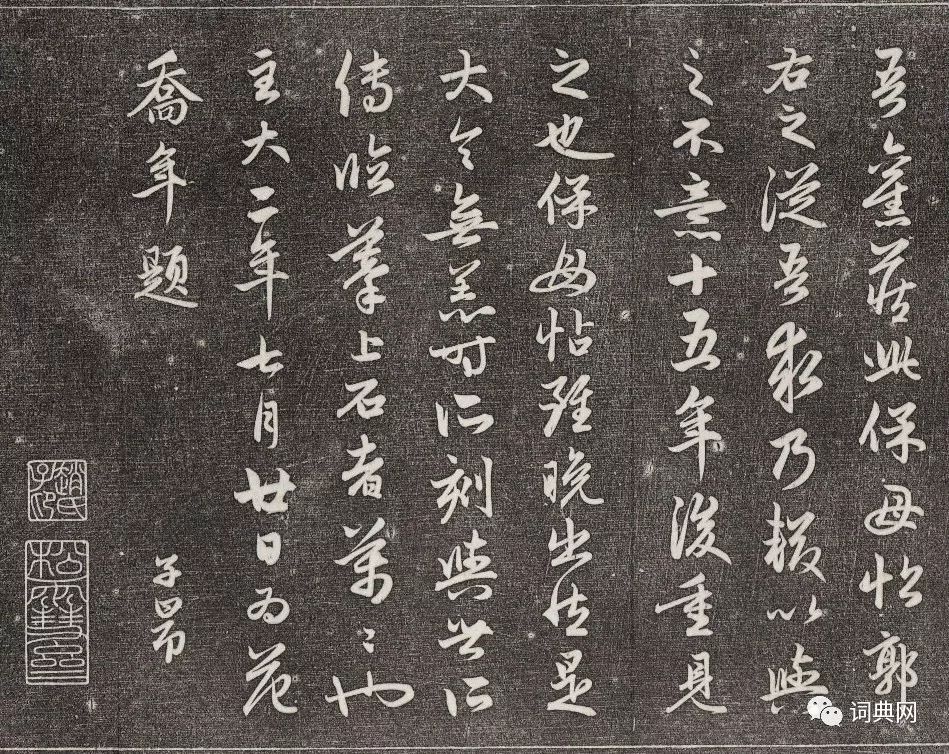 吾舊藏此保母帖郭
右之從吾求乃輟以與
之不意十五年後重見
之也保母帖雖晚出故是
大令無恙時所刻與世所
傳臨摹上石者萬〻也
至大二年七月廿日為范
喬年題 子昂
趙氏子昂
松雪齋
词典网